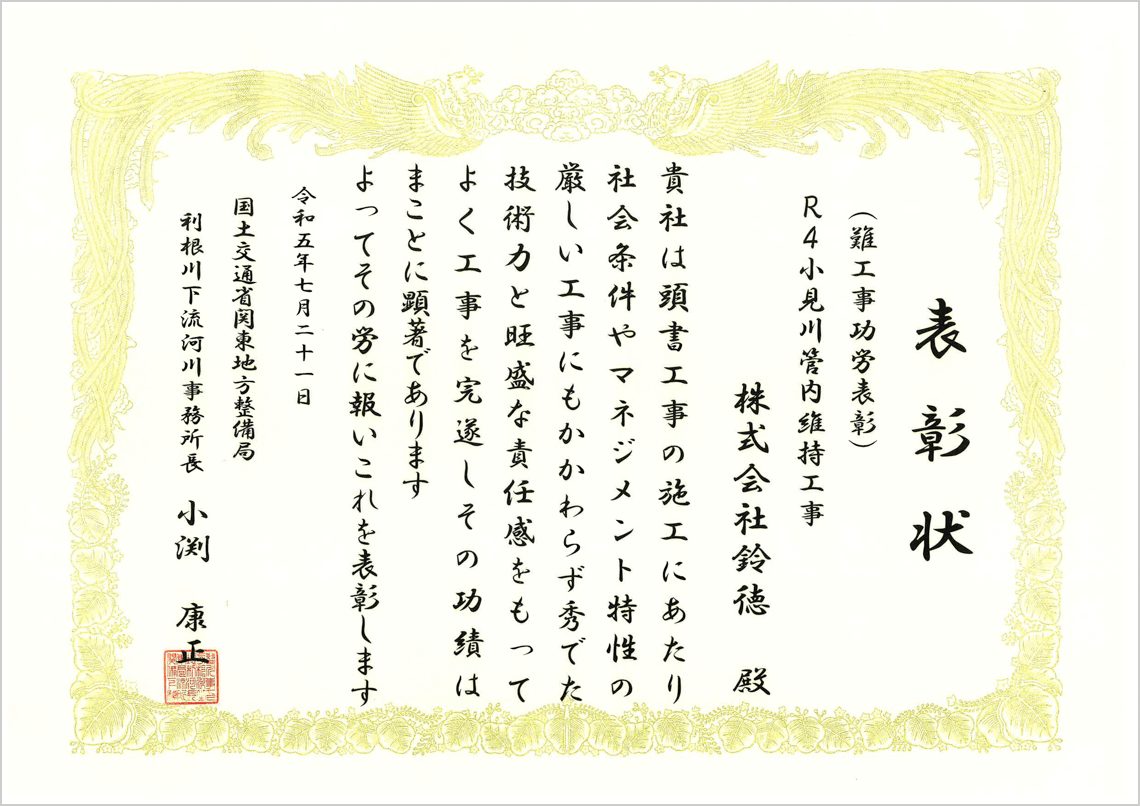 表彰状
(難工事功労表彰)
R4小見川管内維持工事
株式会社鈴徳 殿
貴社は頭書工事の施工にあたり
社会条件やマネジメント特性の
厳しい工事にもかかわらず秀でた
技術力と旺盛な責任感をもって
よく工事を完遂しその功績は
まことに顕著であります
よってその労に報いこれを表彰します
令和五年七月二十一日
国土交通省関東地方整備局
利根川下流河川事務所長 小渕 康正